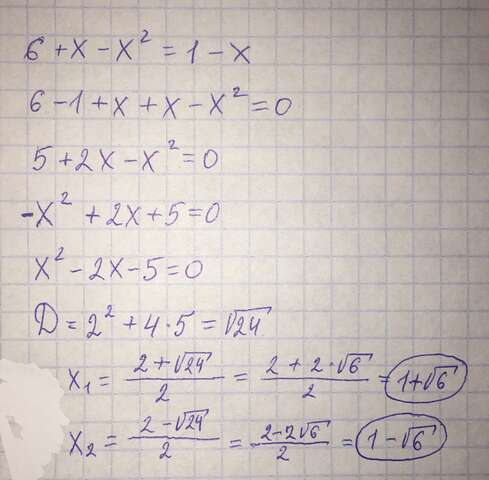 6 + x - x² = 1 - x
6 - 1 + x + x - x² = 0
5 + 2x - x² = 0
-x² + 2x + 5 = 0
x² - 2x - 5 = 0
D = 2² + 4·5 = √24
x₁ = (2 + √24)/2 = (2 + 2·√6)/2 = 1+√6
x₂ = (2 - √24)/2 = (2-2√6)/2 = 1-√6